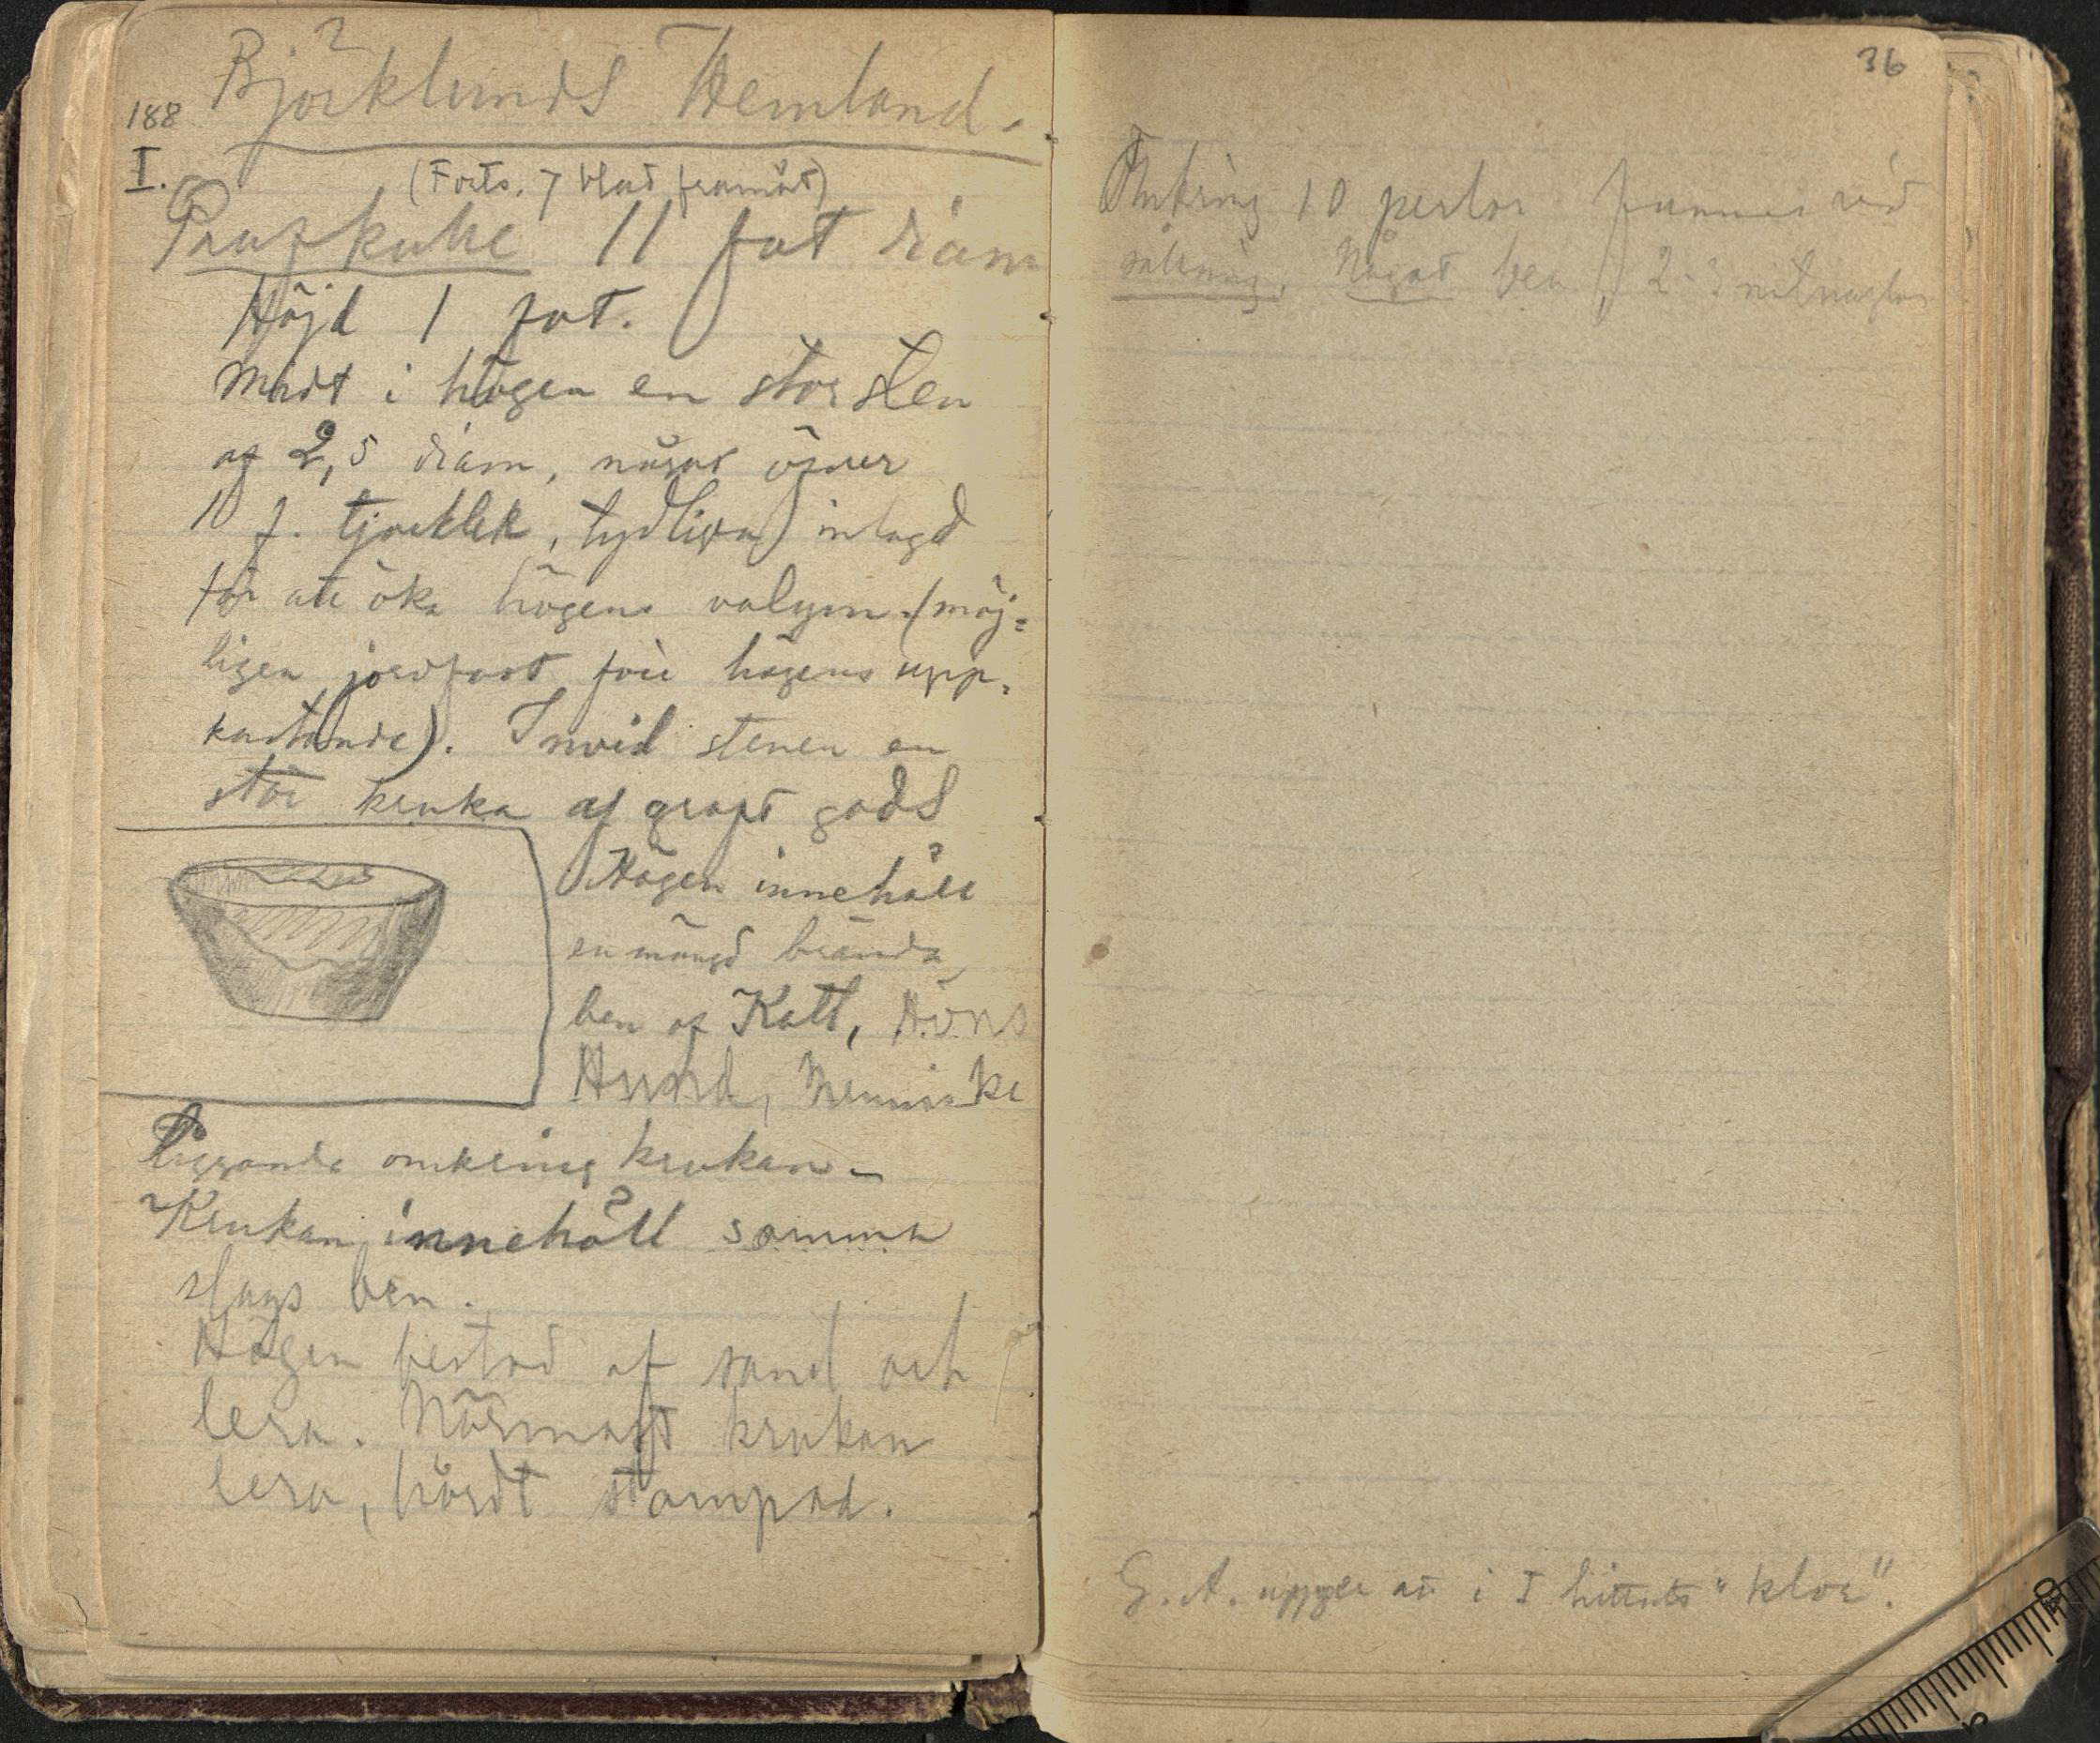 Björklunds Hemland.
188
I.
(Forts. 7 blad framåt)
11 fot diam
Höjd 1 fot.
Midt i högen en stor sten
af 2,5 diam, något öfver
10 f. tjocklek, tydligen inlagd
för att öka högens volym. (möj=
ligen jordfast före högens upp=
kastande). Invid stenen en
stor kruka af groft gods
Högen innehåll
en mängd brända
ben af Katt, Höns
Hund, Menniska
liggande omkring krukan.
Krukan innehåll samma
slags ben.
Högen bestod af sand och
lera. Närmast krukan
lera, hårdt stampad.
36
Omkring 10 perlor funnos vid
sållning. Något ben, 2-3 nitnaglar
G. A. uppger att i I hittats "klor".